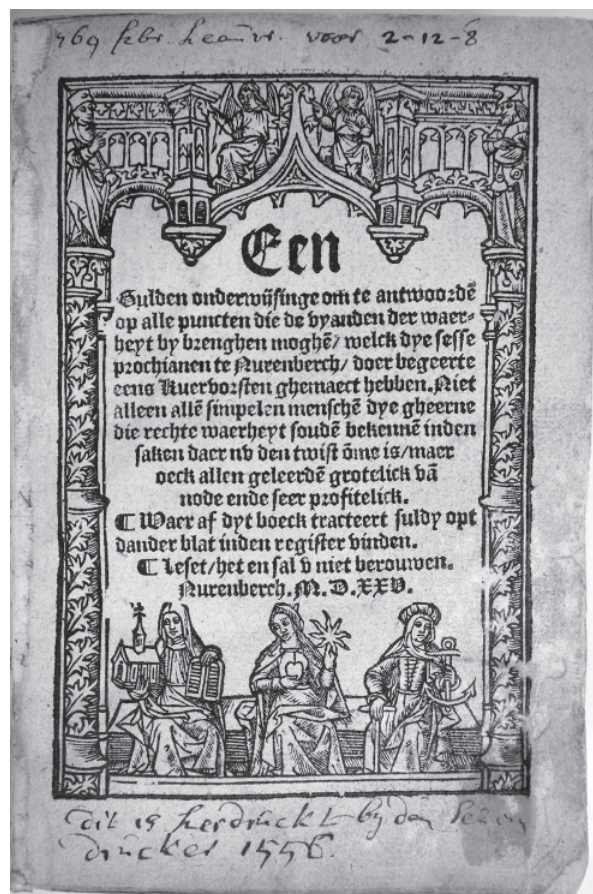 voor 2-12-8
Een
Gulden onderwijsinge om te antwoordē
op alle puncten die de vyanden der waer⸗
heyt by brenghen moghē/ welck dye sesse
prochianen te Nurenberch/ doer begeerte
eens Kuervorsten ghemaect hebben. Niet
alleen allē simpelen menschē dye gheerne
die rechte waerheyt soudē bekennē inden
saken daer nv den twist ōme is/ maer
oeck allen geleerdē grotelick vā
node ende seer profitelick.
¶ Waer af dyt boeck tracteert suldy opt
dander blat inden register vinden.
¶ Leset/ het en sal v niet berouwen.
Nurenberch. M. D. XXV.
dit is herdruckt by den
drucker 1556.